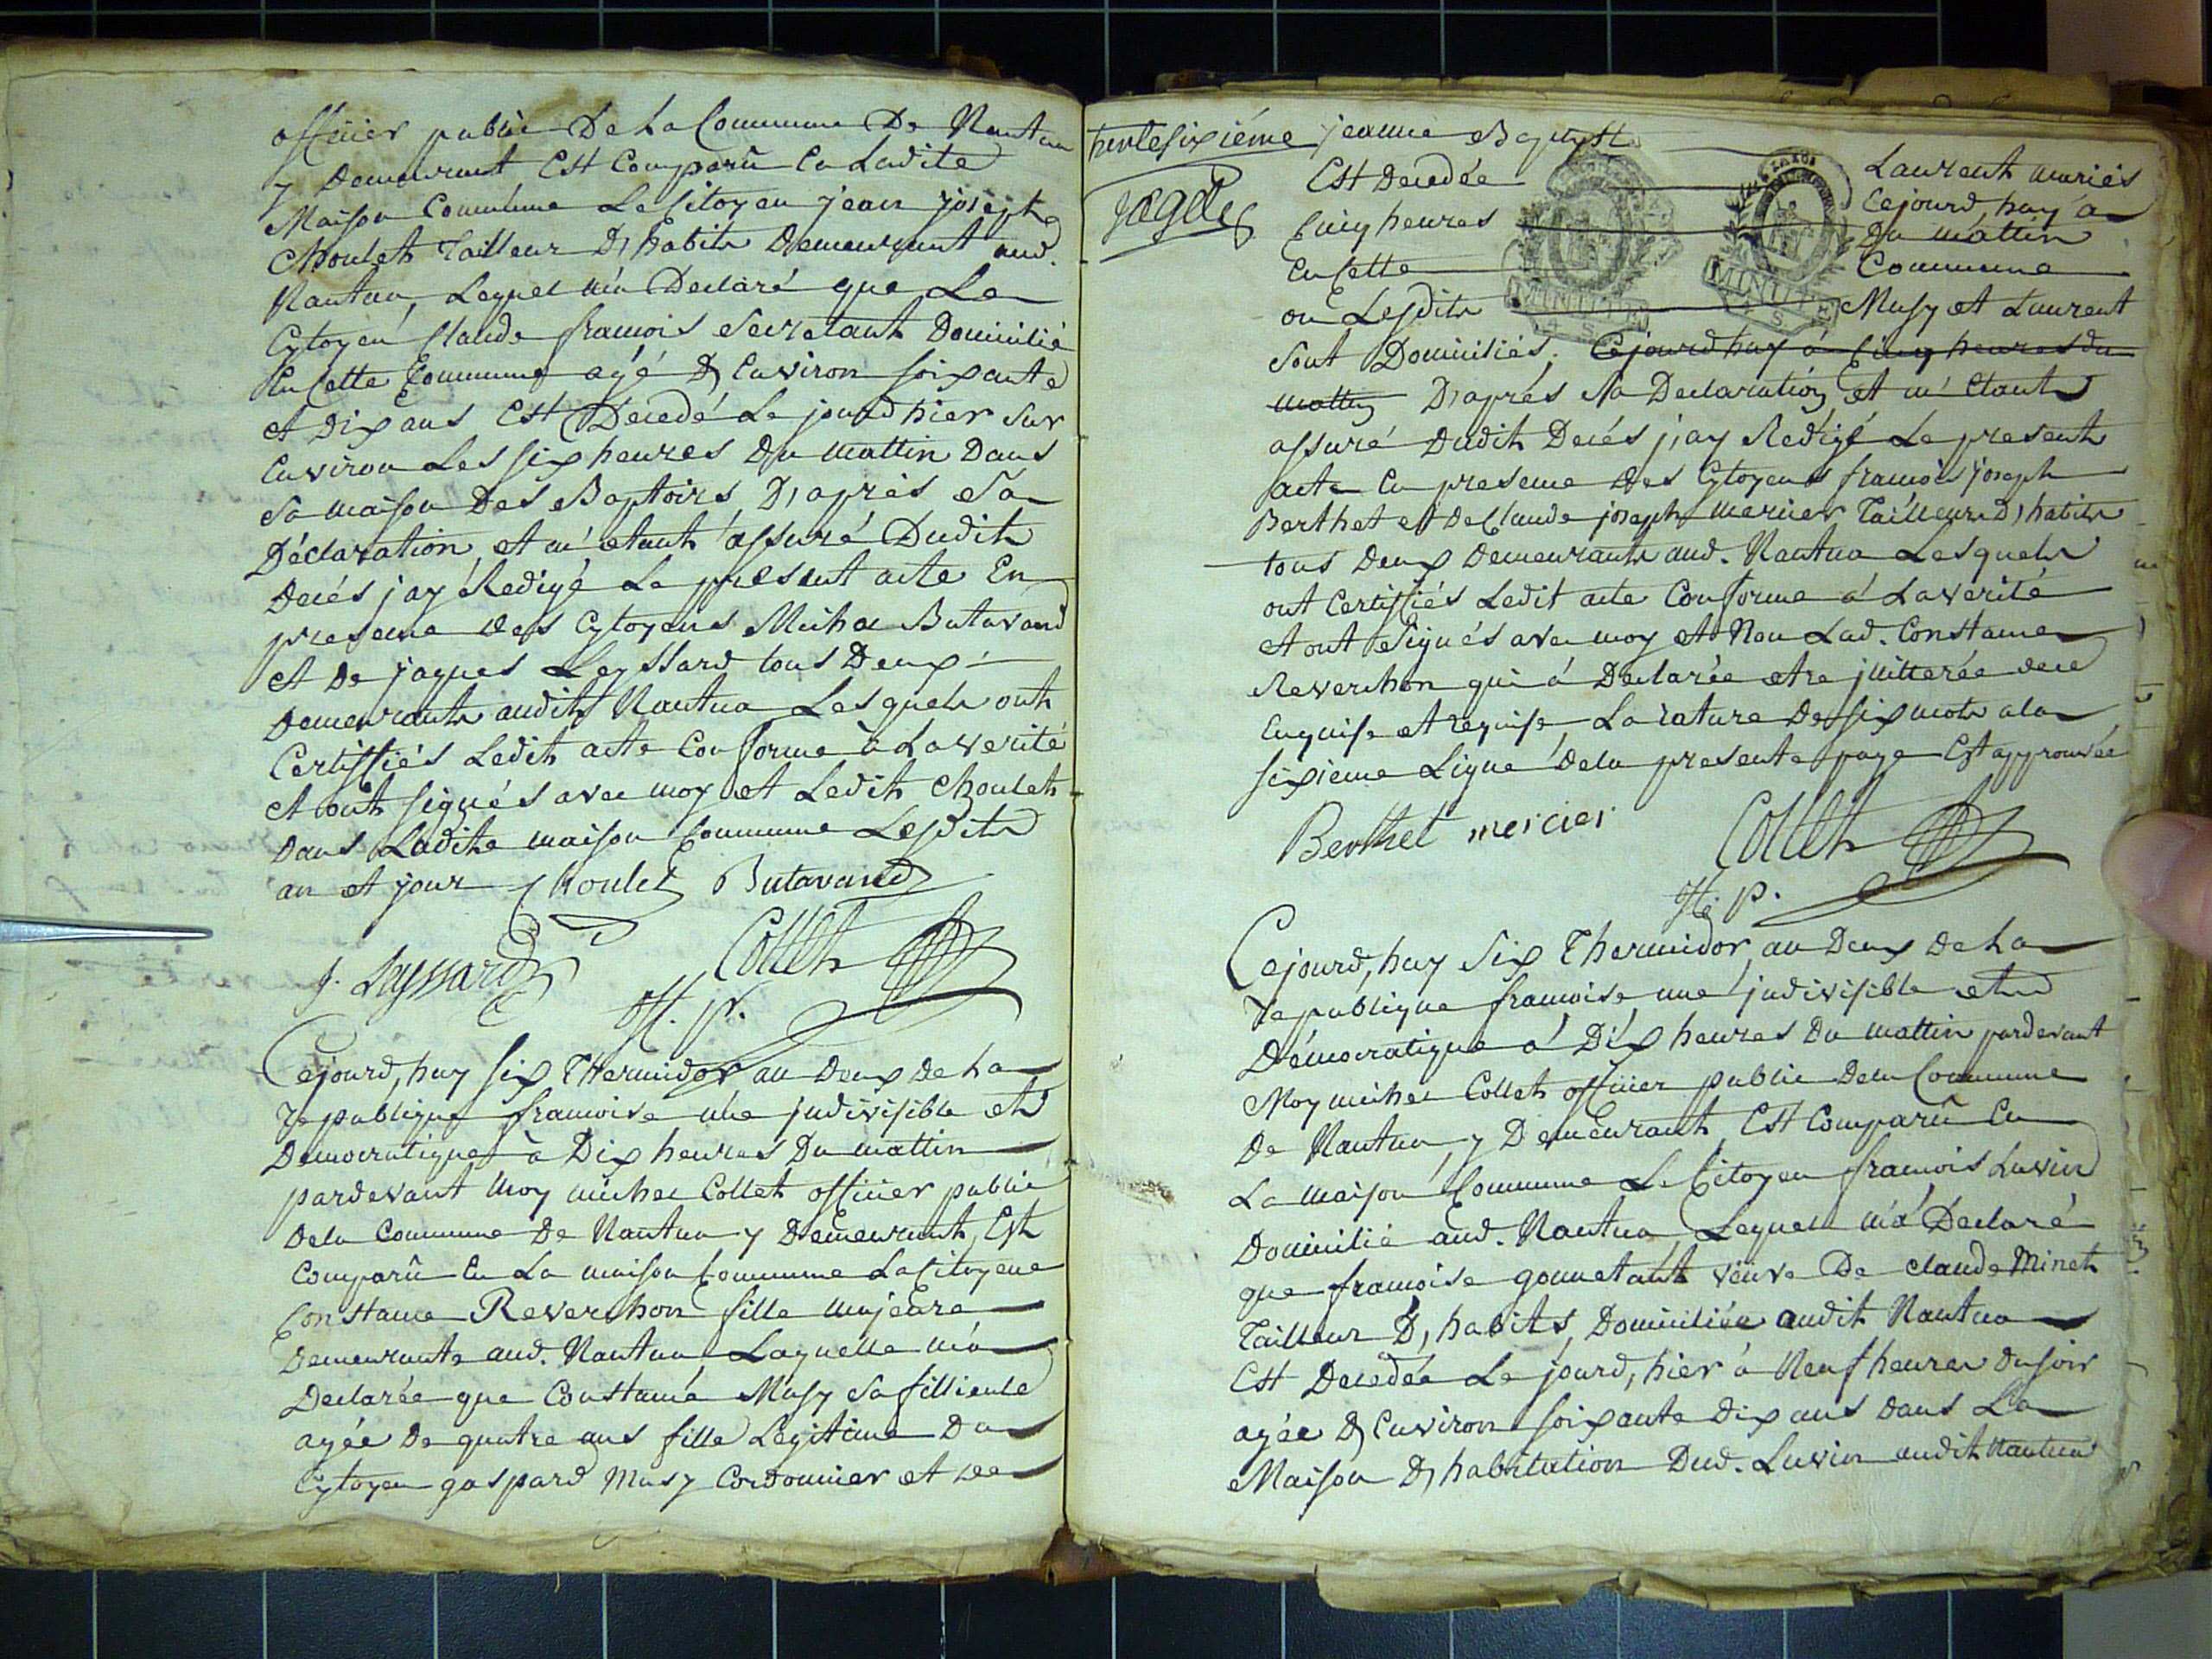 officier public De La Commune De Nantua
y Demeurant Est Comparû En Ladite
Maison Commune Le Citoyen jean joseph
Choulet Tailleur D'habits Demeurant aud.
Nantua, Lequel m'a Declaré que Le
Cytoyen Claude francois Secretant Domicilié
En Cette Commune agé D'Environ soixante
et Dix ans Est Décedé Le jourdhier sur
Environ Les six heures Du mattin Dans
sa maison Des Battoirs D'après Sa
Déclaration, et m'etant assuré Dudit
Decés j'ay Redigé Le present acte En
presence des Cytoyens Michel Butavand
et De jaques Leyssard tous Deux
Demeurants audit Nantua Lesquels ont
Certiffiés Ledit acte Conforme à La verité
et ont signés avec moy et Ledit Choulet
Dans Ladite maison Commune Lesdits
an et jour Choulet Butavand
J. Leyssard Collet
Off. p.
Cejourd'huy six Thermidor an Deux De La
republique francoise une indivisible et
Democratique à Dix heures Du mattin
pardevant Moy michel Collet officier public
De la Commune De Nantua y Demeurant, Est
Comparû En La maison Commune La Citoyene
Constance Reverchon fille majeure
Demeurante aud. Nantua Laquelle m'a
Declarée que Constance Musy sa fillieule
agée De quatre ans fille Legitime Du
Cytoyen gaspard Musy Cordonnier et de
trentesixiéme jeanne Baptyste Laurent mariés
Est Decedée Cejourd'huy a
Cinq heures Du mattin
En Cette Commune
ou Lesdits Musy et Laurent
sont Domiciliés. Cejourdhuy a Cinq heures du
mattin D'aprés Sa Declaration, et m'etant
assuré Dudit Decés j'ay Redigé Le present
acte En presence Des Cytoyens francois joseph
Berthet et De Claude joseph Mercier Tailleurs D'habits
tous Deux Demeurants aud. Nantua Lesquels
ont Certiffiés Ledit acte Conforme á La verité
et ont Signés avec moy et Non Lad. Constance
Reverchon qui á Declarée etre illiterée de ce
Enquise et requise, La rature De six mots a la
sixieme Ligne De la presente page Est approuvée
Berthet mercier Collet
Off. p.
Cejourd'huy Six Thermidor an Deux De La
republique francoise une indivisible et
Démocratique á Dix heures Du mattin pardevant
Moy michel Collet officier public De la Commune
De Nantua, y Demeurant Est Comparû En
La maison Commune Le Citoyen francois Luvin
Domicilié aud. Nantua, Lequel m'á Declaré
que francoise gonnetant veuve De claude Minet
Tailleur D'habits, Domiciliée audit Nantua
Est Decedée Le jourd'hier á Neuf heures du soir
agée D'Environ soixante Dix ans dans La
Maison D'habitation Dud. Luvin audit Nantua
MINUTE
MINUTE